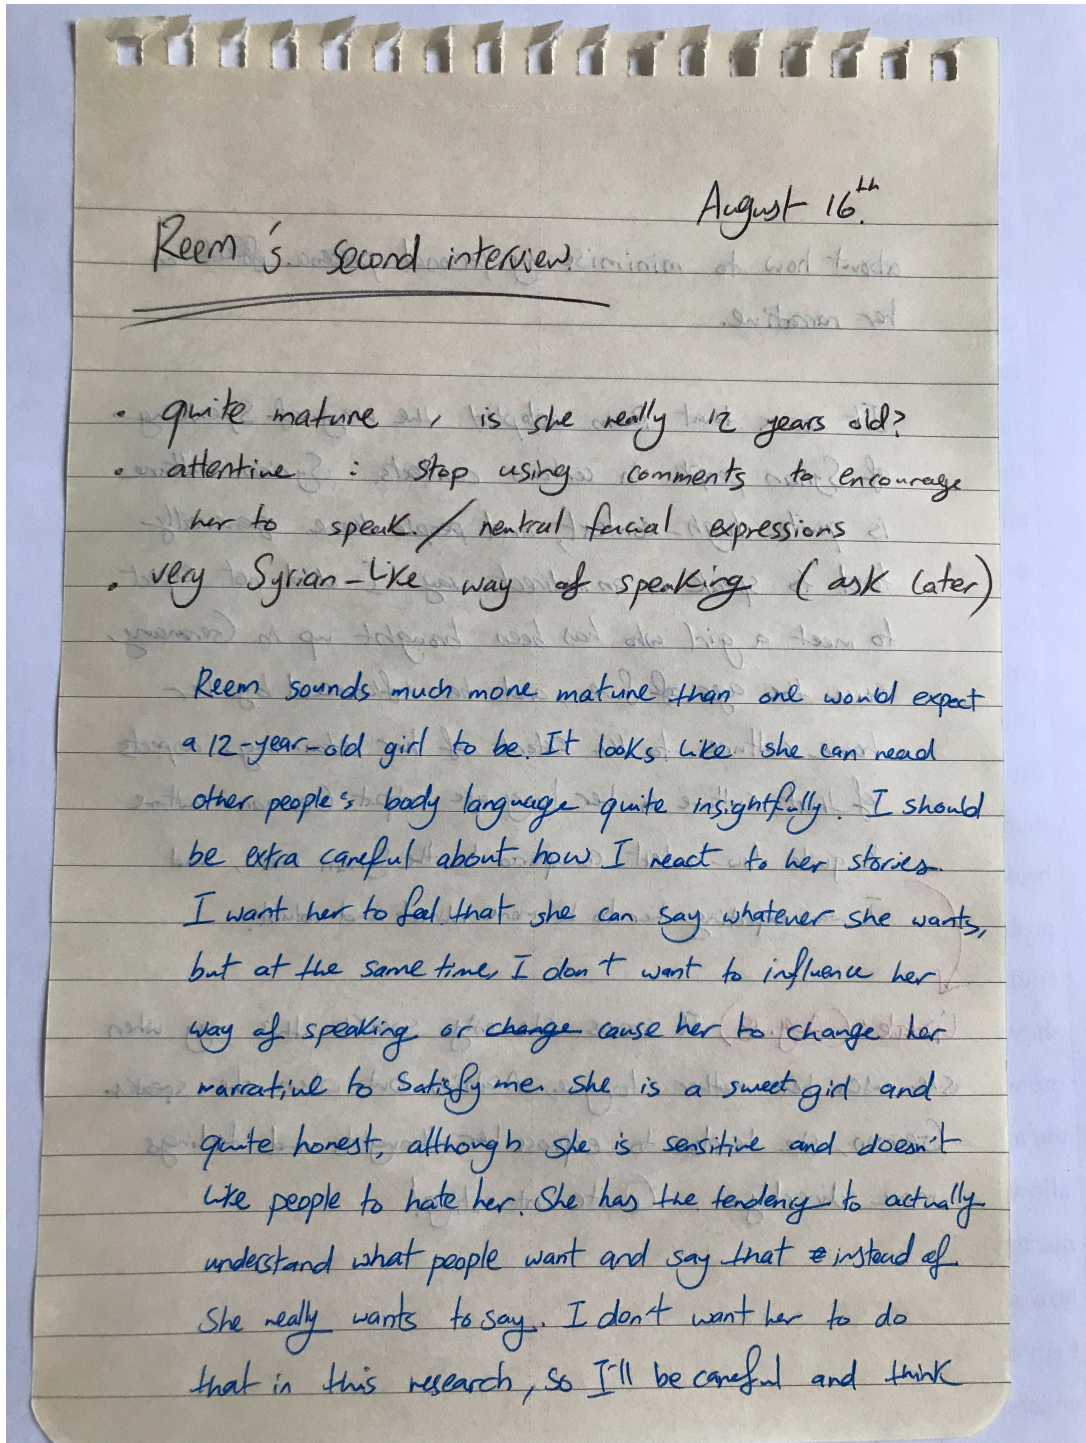 August 16th.
Reem's second interview
• quite mature, is she really 12 years old?
• attentive : stop using comments to encourage
her to speak. / neutral facial expressions
• very Syrian-like way of speaking (ask later)
Reem sounds much more mature than one would expect
a 12-year-old girl to be. It looks like she can read
other people's body language quite insightfully. I should
be extra careful about how I react to her stories.
I want her to feel that she can say whatever she wants,
but at the same time, I don't want to influence her
way of speaking or change cause her to change her
narrative to satisfy me. She is a sweet girl and
quite honest, although she is sensitive and doesn't
like people to hate her. She has the tendency to actually
understand what people want and say that instead of
she really wants to say. I don't want her to do
that in this research, so I'll be careful and think